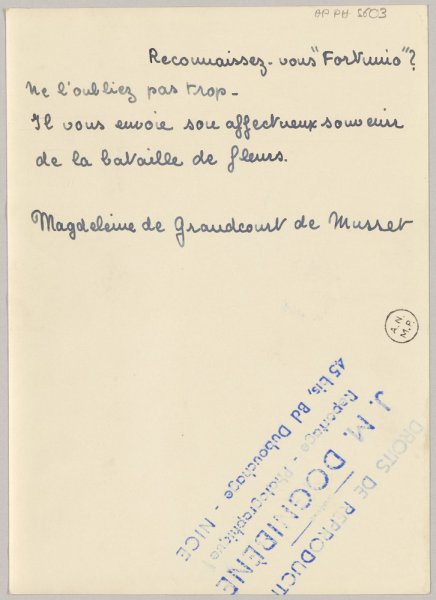 AP PH 5603
Reconnaissez-vous "Fortunio"?
Ne l'oubliez pas trop-
Il vous envoie son affectueux souvenir
de la bataille de fleurs.
Magdeleine de Grandcourt de Musset
A.N.
M.P.
DROITS DE REPRODUCTI
J. M. DOGLIDÈNE
Reportage - Photographique
45 bis, Bd Dubouchage - NICE